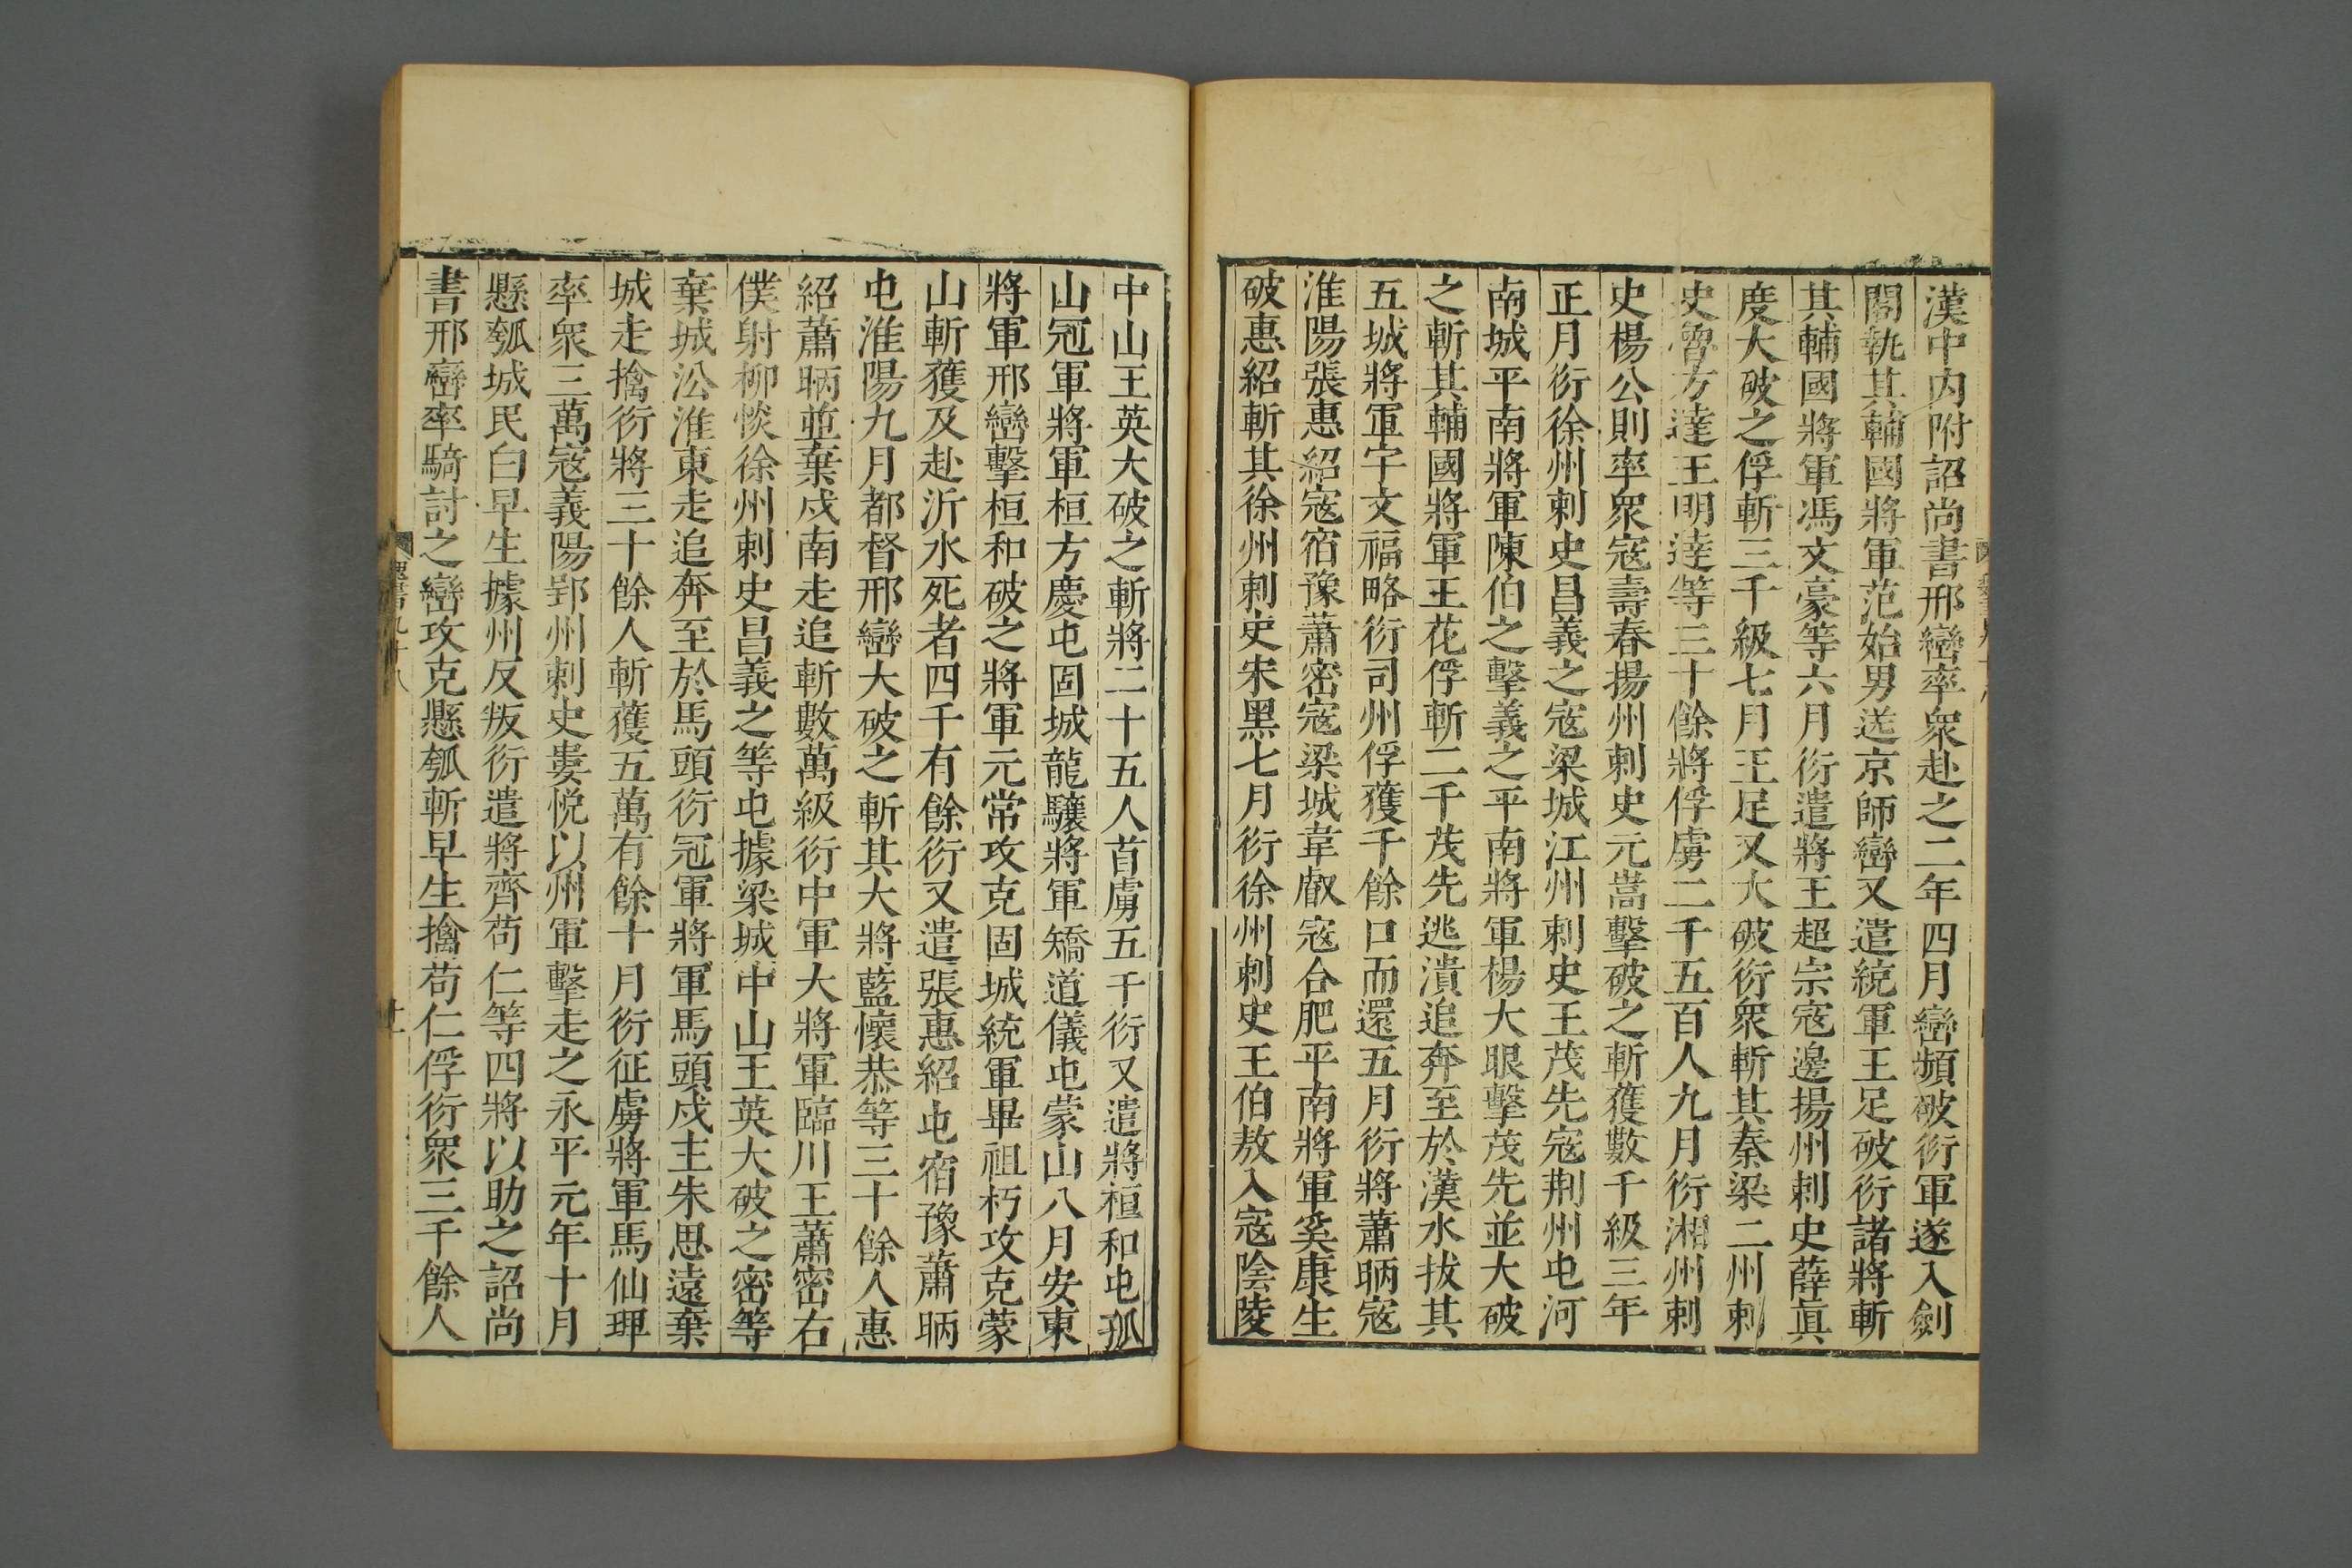 漢中内附詔尚書邢巒率衆赴之二年四月巒頻破衍軍遂入劍
閣執其輔國將軍范始男送京師巒又遣統軍王足破衍諸將斬
其輔國將軍馮文豪等六月衍遣將王超宗寇邊揚州刺史薛眞
度大破之俘斬三千級七月王足又大破衍衆斬其秦梁二州刺
史魯方達王明達等三十餘將俘虜二千五百人九月衍湘州刺
史楊公則率衆寇壽春揚州刺史元嵩擊破之斬獲數千級三年
正月衍徐州刺史昌義之寇梁城江州刺史王茂先寇荆州屯河
南城平南將軍陳伯之擊義之平南將軍楊大眼擊茂先並大破
之斬其輔國將軍王花俘斬二千茂先逃潰追奔至於漢水拔其
五城將軍宇文福略衍司州俘獲千餘口而還五月衍將蕭昞寇
淮陽張惠紹寇宿豫蕭密寇梁城韋叡寇合肥平南將軍奚康生
破惠紹斬其徐州刺史宋黑七月衍徐州刺史王伯敖入寇陰陵
中山王英大破之斬將二十五人首虜五千衍又遣將桓和屯孤
山冠軍將軍桓方慶屯固城龍驤將軍矯道儀屯蒙山八月安東
將軍邢巒擊桓和破之將軍元常攻克固城統軍畢祖朽攻克蒙
山斬獲及赴沂水死者四千有餘衍又遣張惠紹屯宿豫蕭昞
屯淮陽九月都督邢巒大破之斬其大將藍懷恭等三十餘人惠
紹蕭昞並棄戍南走追斬數萬級衍中軍大將軍臨川王蕭密右
僕射柳惔徐州刺史昌義之等屯據梁城中山王英大破之密等
棄城㳂淮東走追奔至於馬頭衍冠軍將軍馬頭戍主朱思遠棄
城走擒衍將三十餘人斬獲五萬有餘十月衍征虜將軍馬仙琕
率衆三萬寇義陽郢州刺史婁悅以州軍擊走之永平元年十月
懸瓠城民白早生據州反叛衍遣將齊苟仁等四將以助之詔尚
書邢巒率騎討之巒攻克懸瓠斬早生擒苟仁俘衍衆三千餘人
魏書九十八